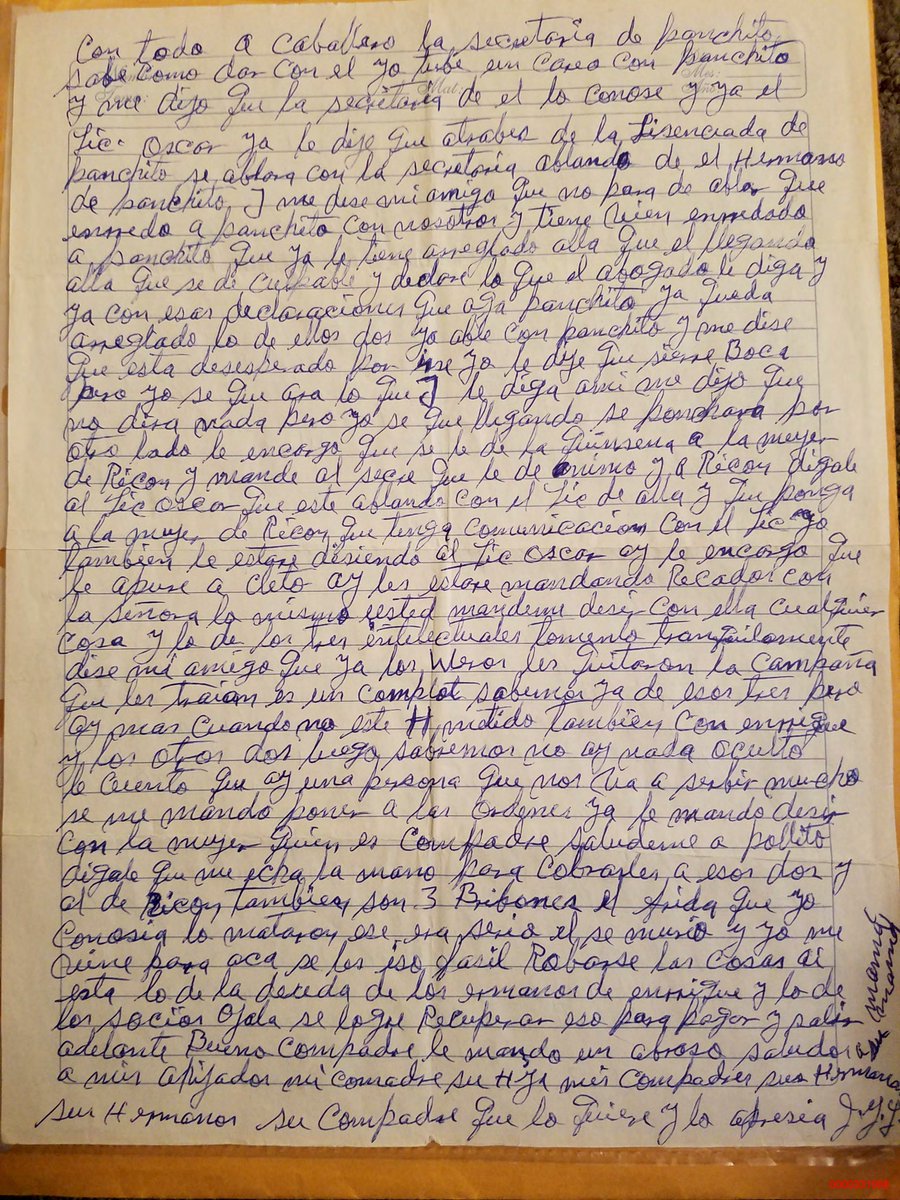 Con todo a caballero la secretaria de panchito
sabe como dar con el yo tube un careo con panchito
y me dijo que la secretaria de el lo conose y ya el
Lic. Oscar ya le dije que atrabes de la Lisenciada de
panchito se ablara con la secretaria ablando de el Hermano
de panchito, J me dise mi amigo que no para de ablar que
enrredo a panchito con nosotros y tiene bien enrredado
a panchito que ya le tiene arreglado alla que el llegando
alla que se de culpable y declare lo que el abogado le diga y
ya con esas declaraciones que aga panchito ya queda
arreglado lo de ellos dos yo able con panchito y me dise
que esta desesperado por irse yo le dije que sierre Boca
pero yo se que ara lo que J le diga ami me dijo que
no dira nada pero yo se que llegando se ponchara por
otro lado le encargo que se le de la quinsena a la mujer
de Ricon y mande al secre que le de animo y a Ricon digale
al Lic Oscar que este ablando con el Lic de alla y que ponga
a la mujer de Ricon que tenga comunicacion con el Lic yo
tambien le estare disiendo al Lic Oscar ay le encargo que
le apure a cleto ay les estare mandando Recados con
la señora lo mismo usted mandeme desir con ella cualquier
cosa y lo de los tres intelectuales tomenlo tranquilamente
dise mi amigo que ya los Weros les quitaron la campaña
que les traian es un complot sabemos ya de esos tres pero
ay mas cuando no este H metido tambien con enrrique
y los otros dos luego sabremos no ay nada oculto
le cuento que ay una persona que nos va a serbir mucho
se me mando poner a las ordenes ya le mando desir
con la mujer quien es compadre saludeme a pollito
digale que me echa la mano para cobrarles a esos dos y
al de Ricon tambien son 3 Bribones el Arida que yo
conosia lo mataron ese era serio el se murio y yo me
vine para aca se les iso fasil Robarse las cosas ai
esta lo de la deuda de los ermanos de enrrique y lo de
los socios Ojala se logre Recuperar eso para pagar y salir
adelante Bueno compadre le mando un abraso saludos a su mamá
a mis aijados mi comadre su Hija mis compadres sus Hermanas
sus Hermanos su compadre que lo quiere y lo apresia J.G.L.